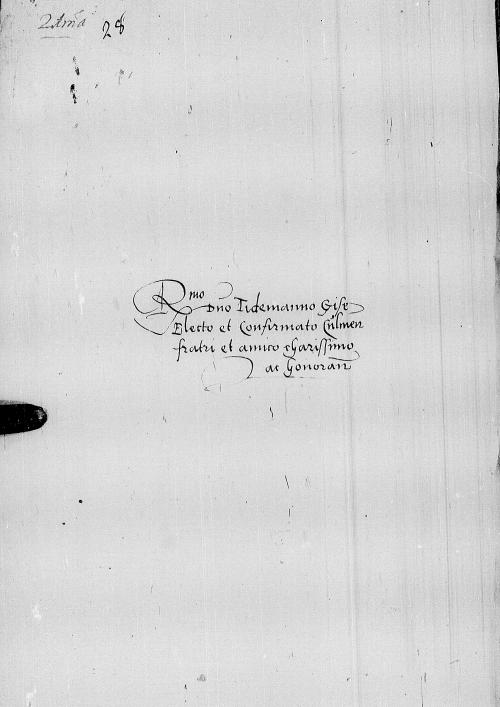 28
Rmo
Dno Tidemanno Gise
Electo et Confirmato Culmen
fratri et amico charissimo
ac honoran